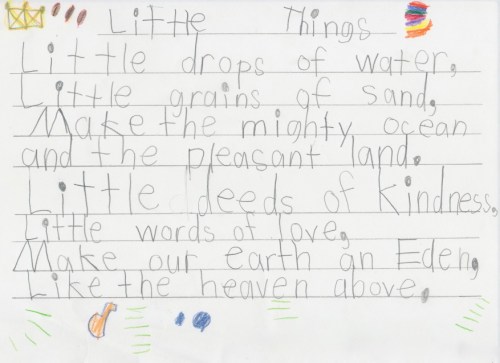 Little Things
Little drops of water,
Little grains of sand,
Make the mighty ocean
and the pleasant land.
Little deeds of kindness,
Little words of love,
Make our earth an Eden,
Like the heaven above.